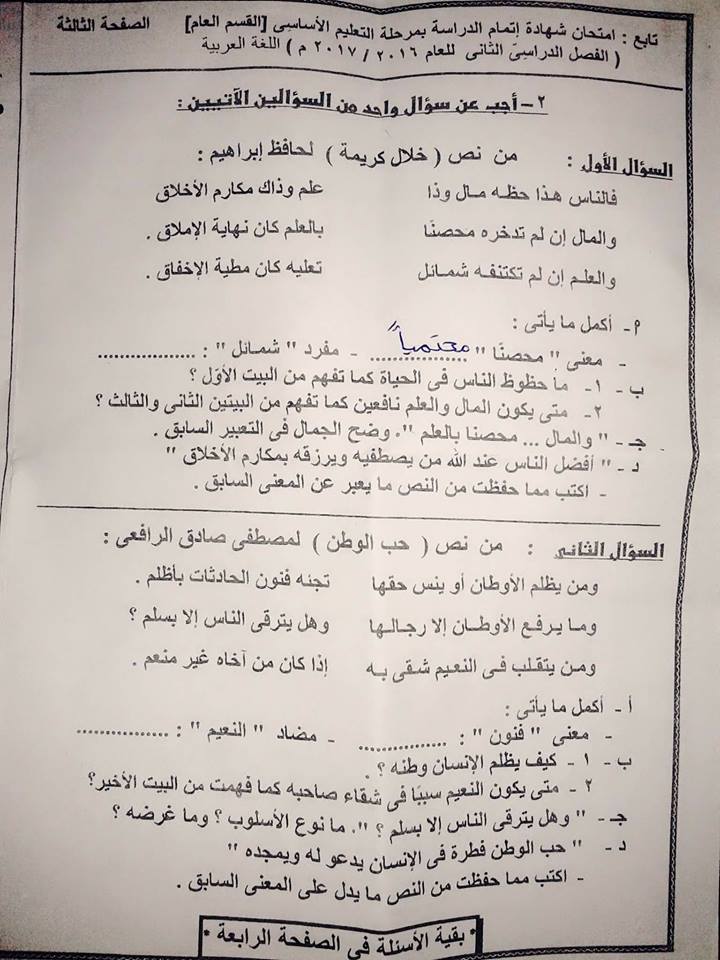 تابع : امتحان شهادة إتمام الدراسة بمرحلة التعليم الأساسى [القسم العام] الصفحة الثالثة
( الفصل الدراسىّ الثانى للعام ٢٠١٦ / ٢٠١٧ م ) اللغة العربية
٢ – أجب عن سؤال واحد من السؤالين الآتيين :
السؤال الأول : من نص ( خلال كريمة ) لحافظ إبراهيم :
فالناس هذا حظه مال وذا علم وذاك مكارم الأخلاق
والمال إن لم تدخره محصنًا بالعلم كان نهاية الإملاق .
والعلم إن لم تكتنفه شمائل تعليه كان مطية الإخفاق .
م – أكمل ما يأتى :
- معنى " محصنًا " محتمياً .............. - مفرد " شمائل " : ................
ب – ١ – ما حظوظ الناس فى الحياة كما تفهم من البيت الأول ؟
٢ – متى يكون المال والعلم نافعين كما تفهم من البيتين الثانى والثالث ؟
جـ – " والمال ... محصنا بالعلم ". وضح الجمال فى التعبير السابق .
د – " أفضل الناس عند الله من يصطفيه ويرزقه بمكارم الأخلاق "
- اكتب مما حفظت من النص ما يعبر عن المعنى السابق .
السؤال الثانى : من نص ( حب الوطن ) لمصطفى صادق الرافعى :
ومن يظلم الأوطان أو ينس حقها تجنه فنون الحادثات بأظلم .
وما يرفع الأوطان إلا رجالها وهل يترقى الناس إلا بسلم ؟
ومن يتقلب فى النعيم شقى به إذا كان من آخاه غير منعم .
أ – أكمل ما يأتى :
- معنى " فنون " : ................ - مضاد " النعيم " : ................
ب – ١ – كيف يظلم الإنسان وطنه ؟
٢ – متى يكون النعيم سببًا فى شقاء صاحبه كما فهمت من البيت الأخير؟
جـ – " وهل يترقى الناس إلا بسلم ؟ ". ما نوع الأسلوب ؟ وما غرضه ؟
د – " حب الوطن فطرة فى الإنسان يدعو له ويمجده "
- اكتب مما حفظت من النص ما يدل على المعنى السابق .
* بقية الأسئلة فى الصفحة الرابعة *